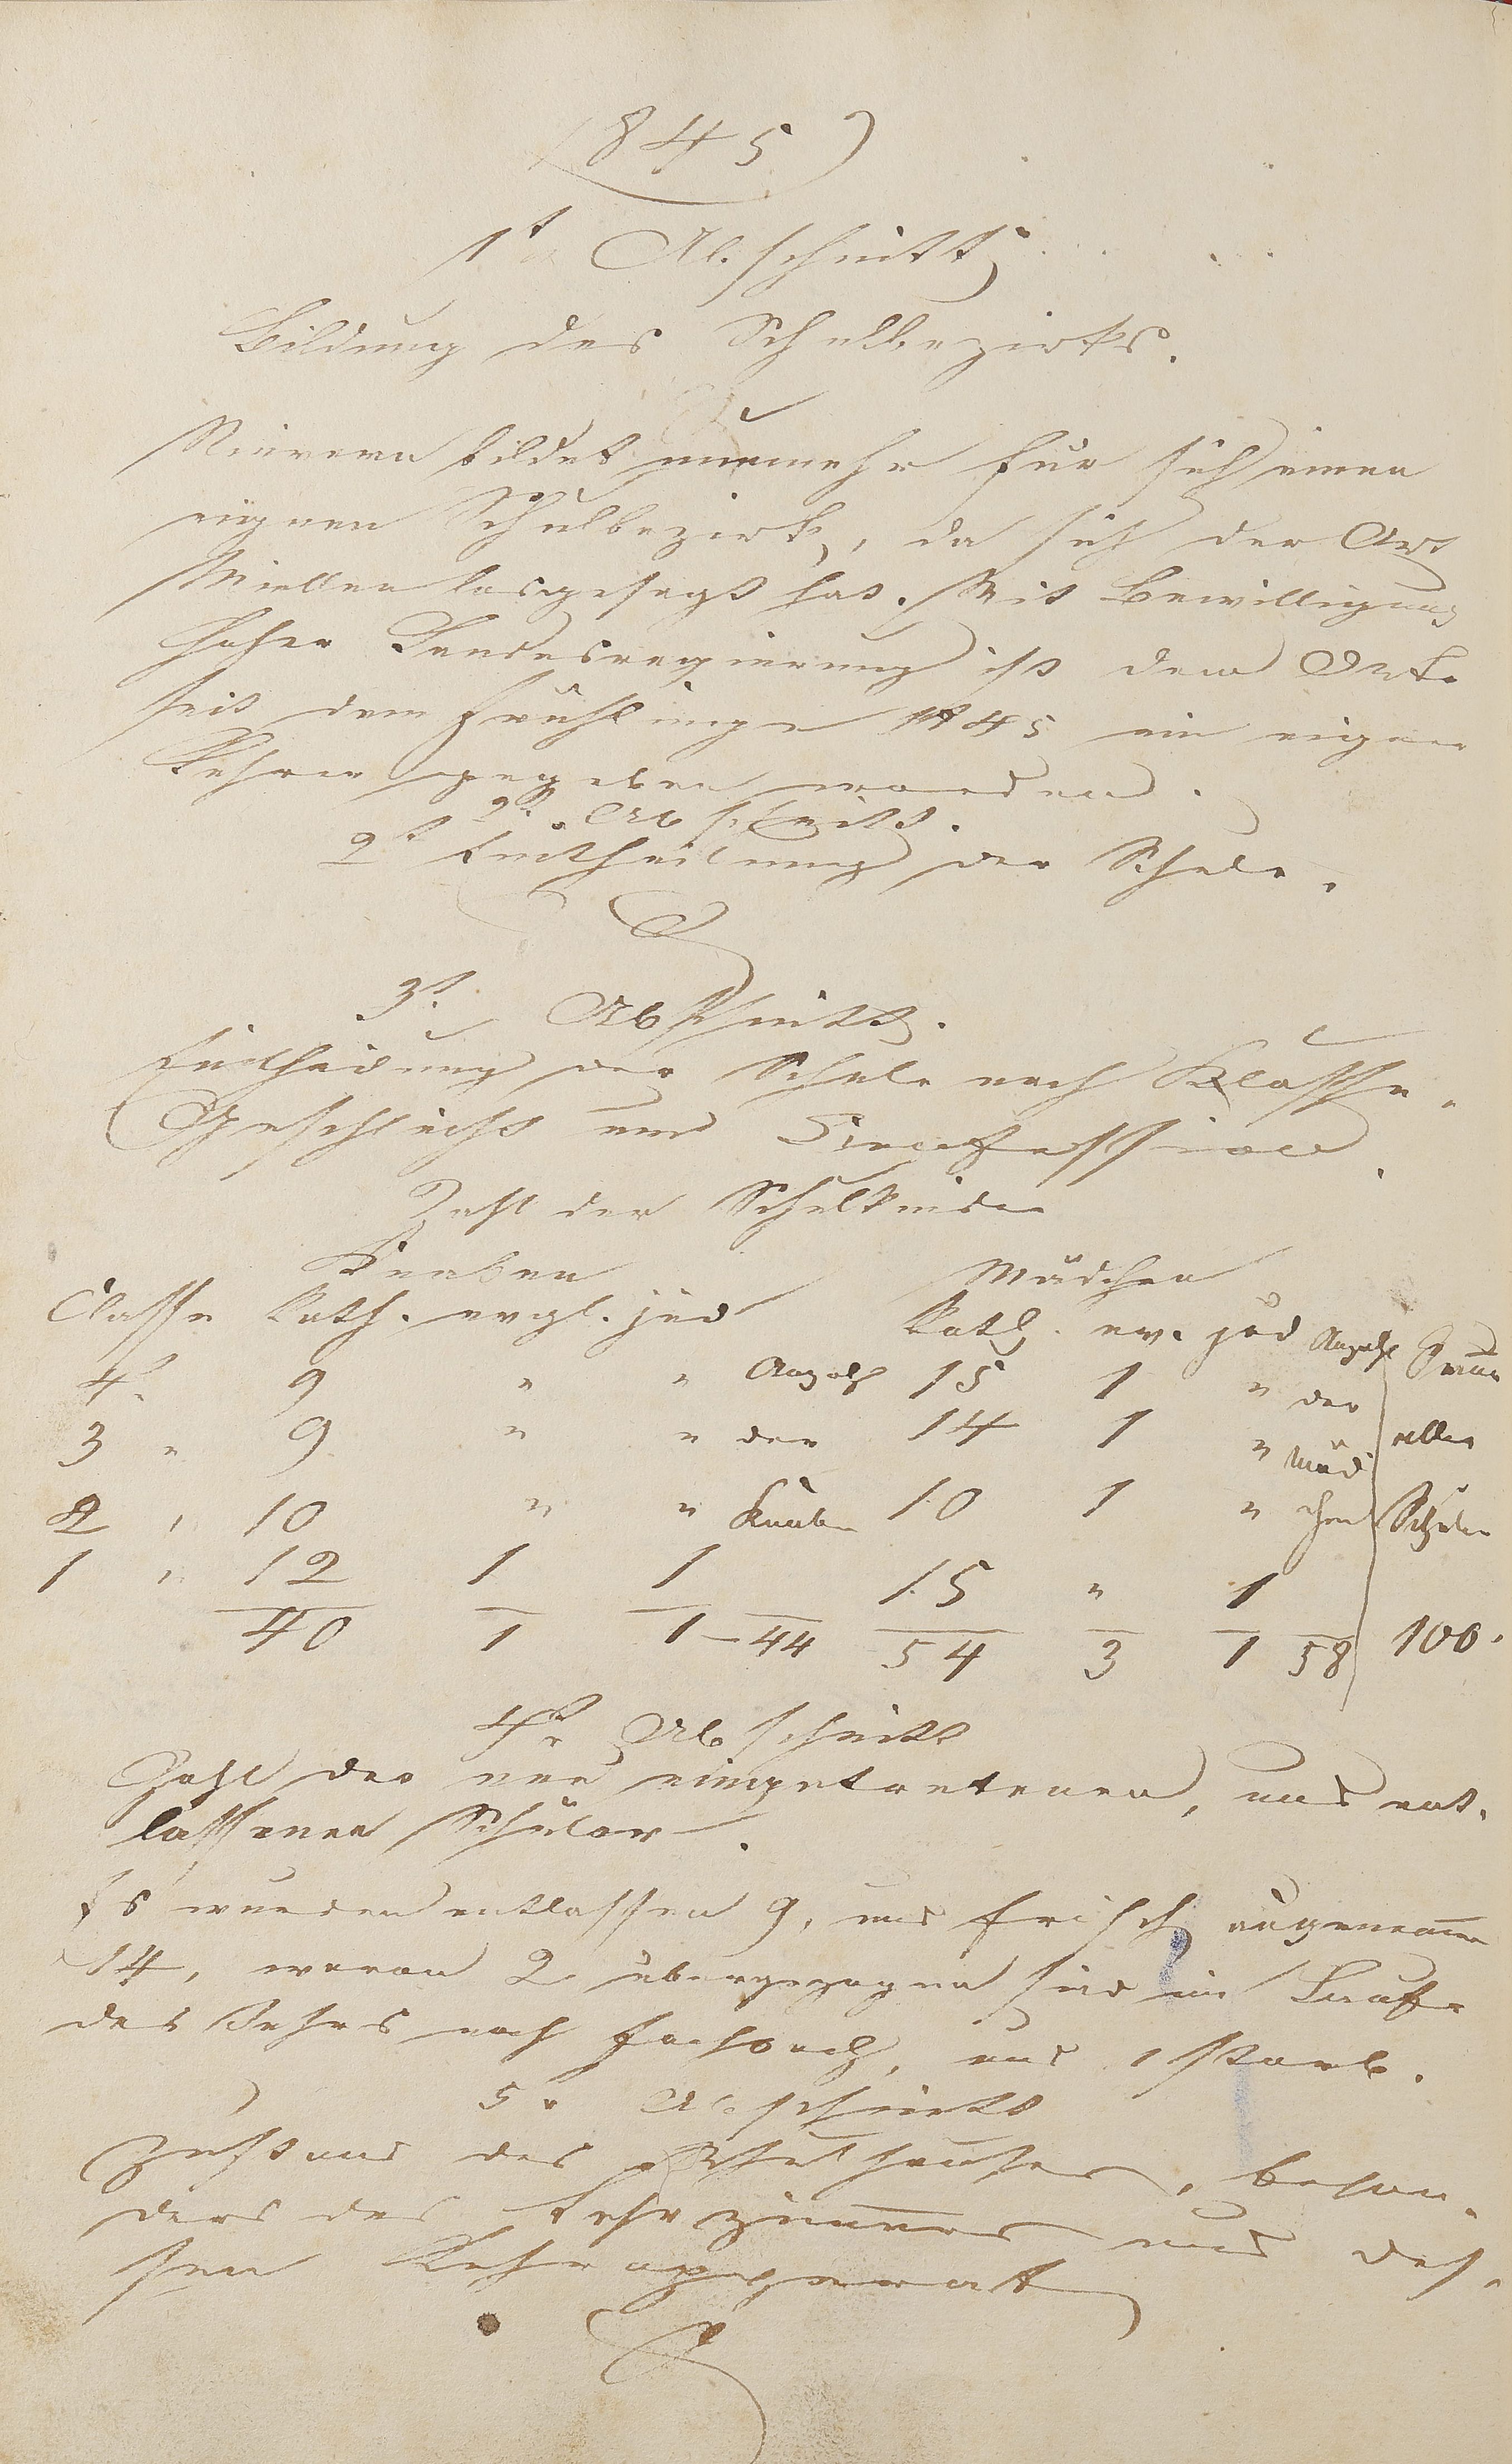 1845
1t Abschnitt
Bildung des Schulbezirks.
Nievern bildet nunmehr für sich einen
eignen Schulbezirk, da sich der Ort
Miellen losgesagt hat. Mit Bewilligung
hoher Landesregierung ist dem Orte
seit dem Frühlinge 1845 ein eigner
Lehrer gegeben worden.
2r. Abschnitt.
2t Eintheilung der Schule.
3t. Abschnitt.
Eintheilung der Schule nach Klasse,
Geschlecht und Confession.
Zahl der Schulkinder
Knaben Mädchen
Classe Kath. evgl. jüd Kath. ev. jüd Anzahl Summe
4r 9 " " Anzahl 15 1 " der
3 " 9 " " der 14 1 " Mäd aller
2 " 10 " " Knaben 10 1 " chen Schüler
1 " 12 1 1 15 " 1
40 1 1 - 44 54 3 1 58 100.
4r Abschnitt
Zahl der neu eingetretenen, und ent-
lassenen Schüler.
Es wurden entlassen 9, und frisch aufgenommen
14, wovon 2 übergezogen sind im Laufe
des Jahrs nach Fachbach, und 1 starb.
5r Abschnitt
Zustand des Schulhauses, beson-
ders des Lehrzimmers und des-
sen Lehrapparat